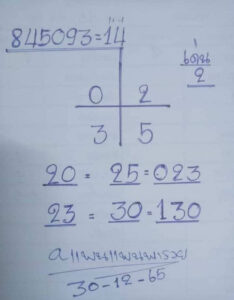 845093=14
เด่น
2
0 2
3 5
20 = 25=023
23 = 30=130
30-12-65